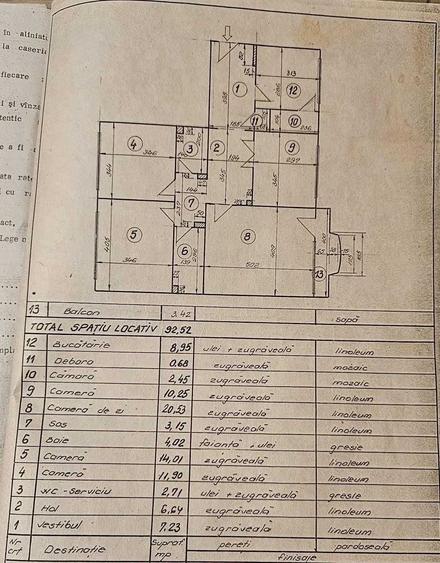 în aliniat
la caseri
fiecare
i și vînza
tentic
e a fi
ata rate
act,
Lege n
1
313
12
11
10
236
185
4
386
344
3
2
184
345
9
297
345
144
7
5
405
346
6
139
8
502
409
13
13 Balcon 3.42 șapă
TOTAL SPAȚIU LOCATIV 92,52
12 Bucătărie 8,95 ulei + zugrăveală linoleum
11 Debara 0.68 zugrăveală mozaic
10 Cămară 2,45 zugrăveală mozaic
9 Cameră 10,25 zugrăveală linoleum
8 Cameră de zi 20,53 zugrăveală linoleum
7 Sas 3,15 zugrăveală linoleum
6 Baie 4,02 faianță + ulei gresie
5 Cameră 14,01 zugrăveală linoleum
4 Cameră 11,90 zugrăveală linoleum
3 WC - Serviciu 2,71 ulei + zugrăveală gresie
2 Hol 6,64 zugrăveală linoleum
1 Vestibul 7.23 zugrăveală linoleum
Nr crt Destinație Supraf. mp pereți pardoseală
finisaje